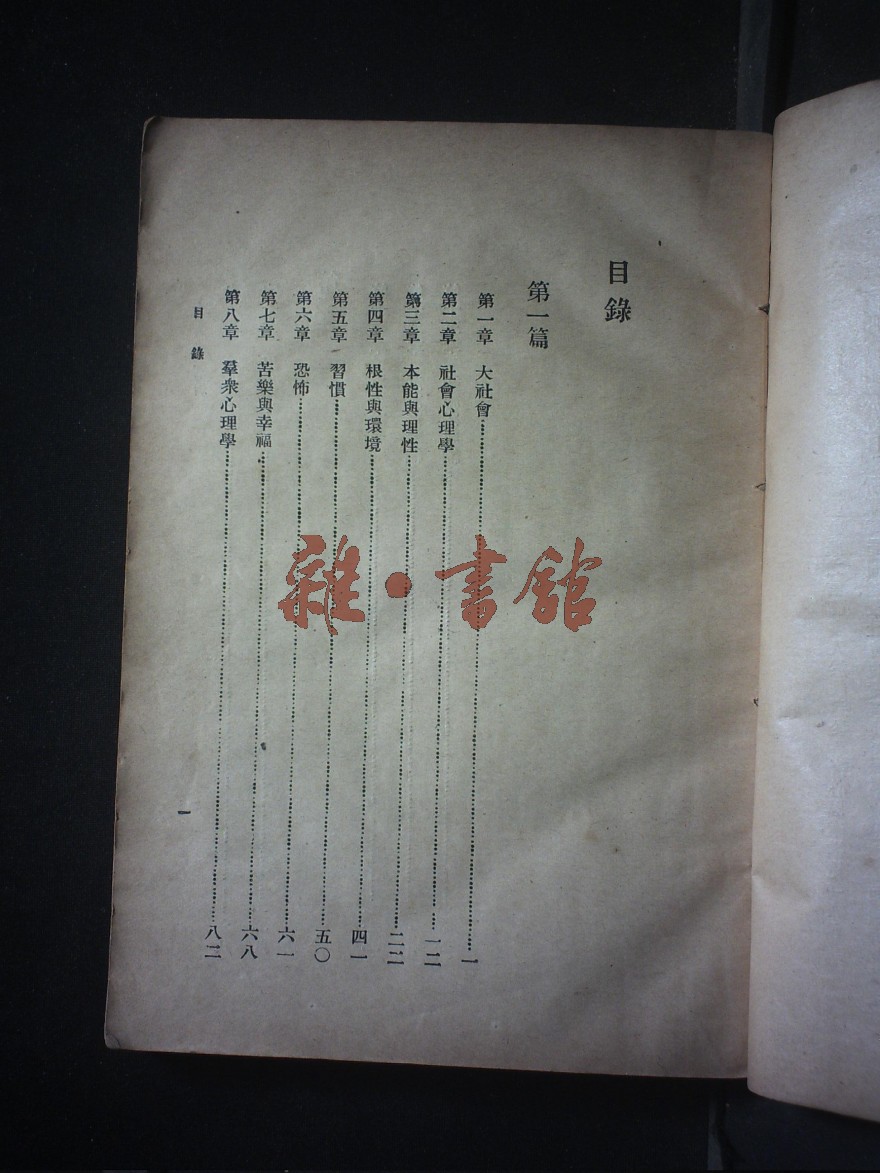 目錄
第一篇
第一章 大社會……一
第二章 社會心理學……一二
第三章 本能與理性……二二
第四章 根性與環境……四一
第五章 習慣……五〇
第六章 恐怖……六一
第七章 苦樂與幸福……六八
第八章 羣衆心理學……八二
目錄
一
雜·書館